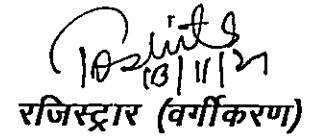 13/11/21
रजिस्ट्रार (वर्गीकरण)